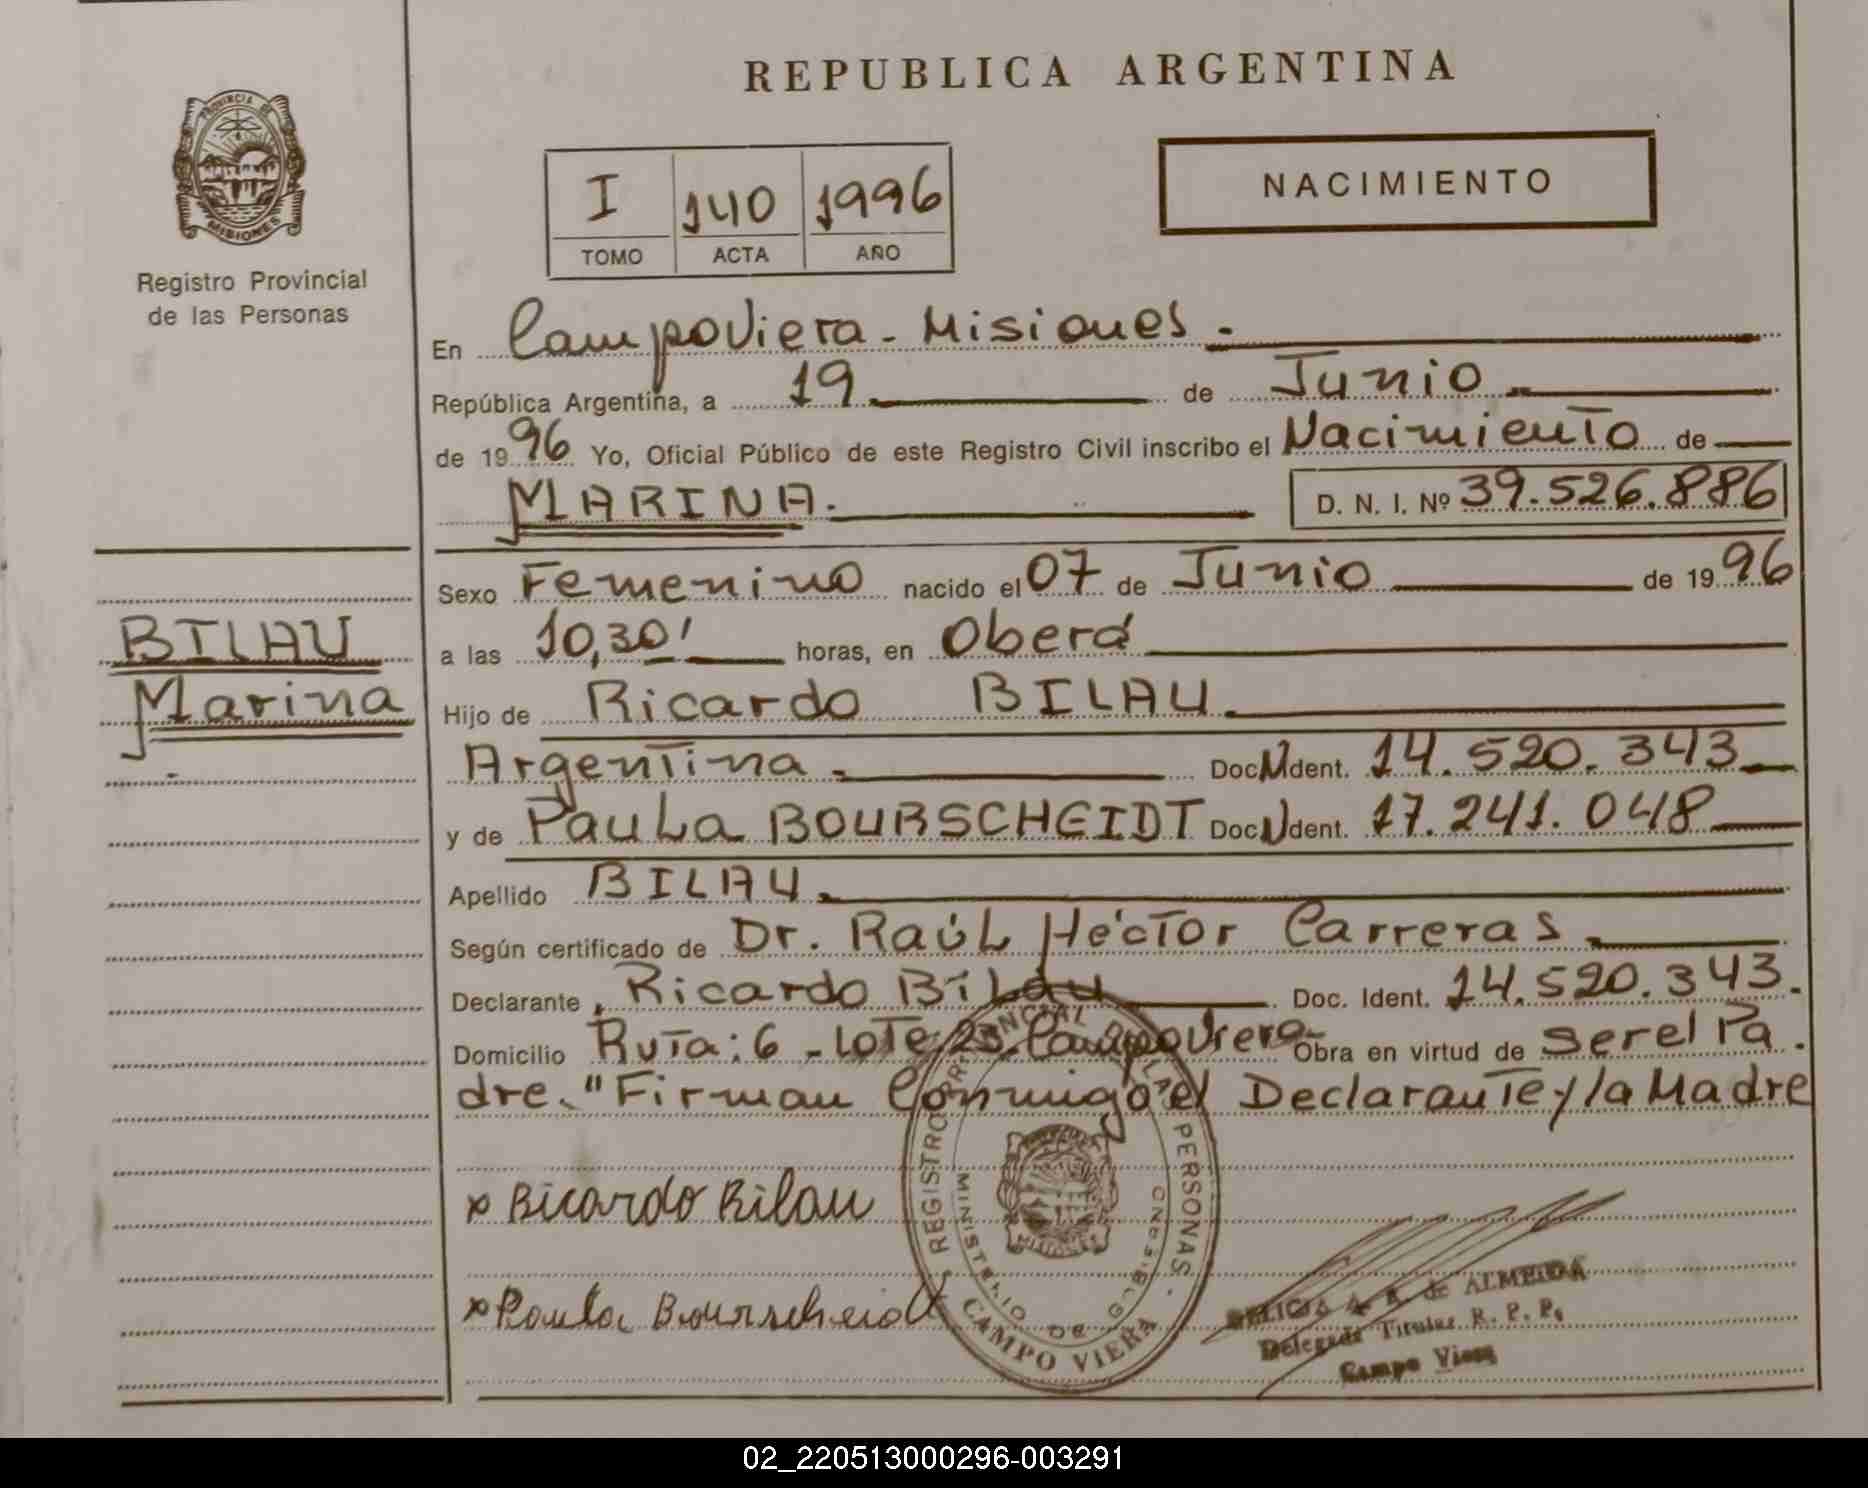 REPUBLICA ARGENTINA
PROVINCIA DE
MISIONES
Registro Provincial
de las Personas
I 140 1996
TOMO ACTA AÑO
NACIMIENTO
En Campoviera - Misiones.
República Argentina, a 19 de Junio
de 1996 Yo, Oficial Público de este Registro Civil inscribo el Nacimiento de
MARINA. D. N. I. Nº 39.526.886
Sexo Femenino nacido el 07 de Junio de 1996
BILAU
Marina
a las 10,30' horas, en Oberá
Hijo de Ricardo BILAU.
Argentina. Doc. Ident. 14.520.343
y de Paula BOURSCHEIDT Doc. Ident. 17.241.048
Apellido BILAU.
Según certificado de Dr. Raúl Héctor Carreras.
Declarante Ricardo Bilau Doc. Ident. 14.520.343.
Domicilio Ruta: 6 - Lote 23. Campoviera Obra en virtud de ser el Pa
dre. "Firman Conmigo el Declarante y la Madre
x Ricardo Bilau
x Paula Bourscheid
REGISTRO PROVINCIAL DE LAS PERSONAS
MINISTERIO DE GOBIERNO
MISIONES
CAMPO VIERA
de ALMEIDA
Delegada Titular R. P. P.
Campo Viera
02_220513000296-003291